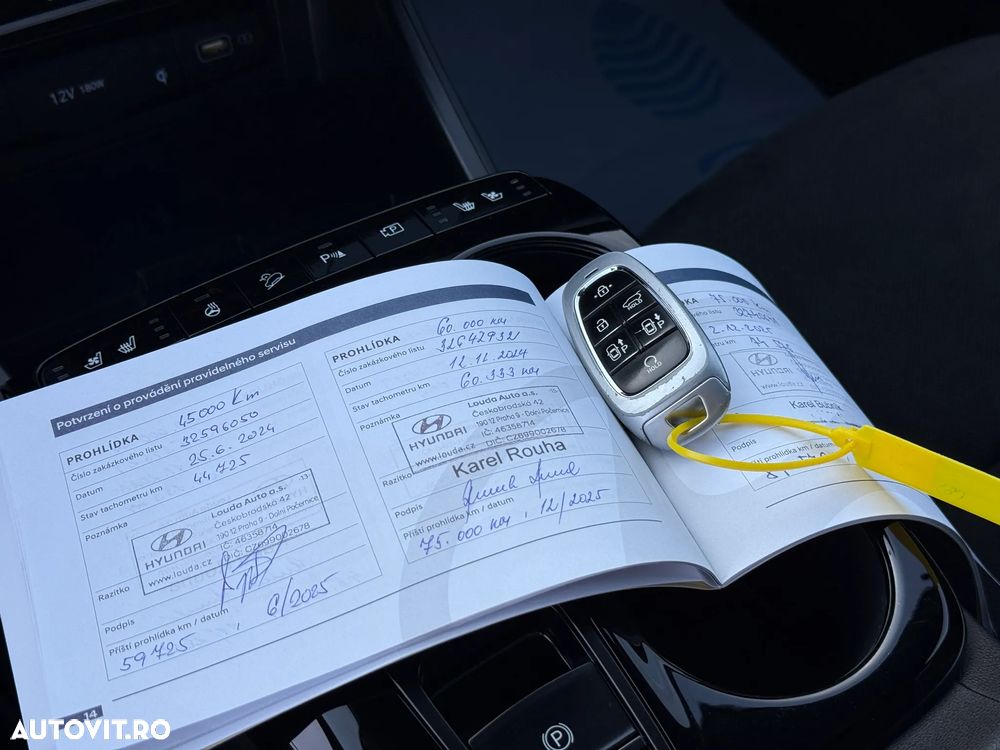 12V 180W
P
P
Potvrzení o provádění pravidelného servisu
PROHLÍDKA 45000 Km
Číslo zakázkového listu 32596050
Datum 25.6. 2024
Stav tachometru km 44725
Poznámka
HYUNDAI
www.louda.cz
Louda Auto a.s. -13-
Českobrodská 42
190 12 Praha 9 - Dolní Počernice
IČ: 46358714
DIČ: CZ699002678
Razítko
Podpis
Příští prohlídka km / datum
59725, 6/2025
14
PROHLÍDKA 60.000 km
Číslo zakázkového listu 32647932
Datum 12.11.2024
Stav tachometru km 60.333 km
Poznámka
HYUNDAI
www.louda.cz
Louda Auto a.s.
Českobrodská 42
190 12 Praha 9 - Dolní Počernice
IČ: 46358714
DIČ: CZ699002678
Razítko Karel Rouha
Podpis
Příští prohlídka km / datum
75.000 km, 12/2025
75.000 km
2.12.2025
HYUNDAI
www.louda
Podpis
prohlídka km / datum
HOLD
P
P
HOLD
P
AUTOVIT.RO